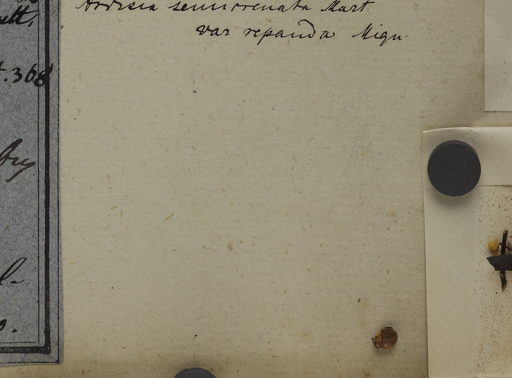 Ardisia semicrenata Mart
var repanda Miqu
t. 368